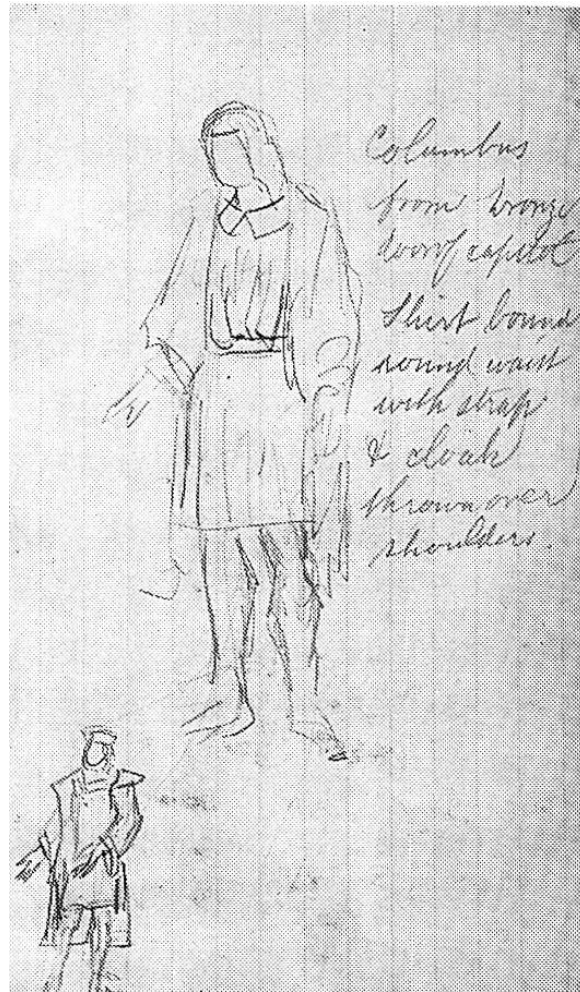 Columbus
from bronze
door of capitol
Shirt bound
round waist
with strap
& cloak
thrown over
shoulders.